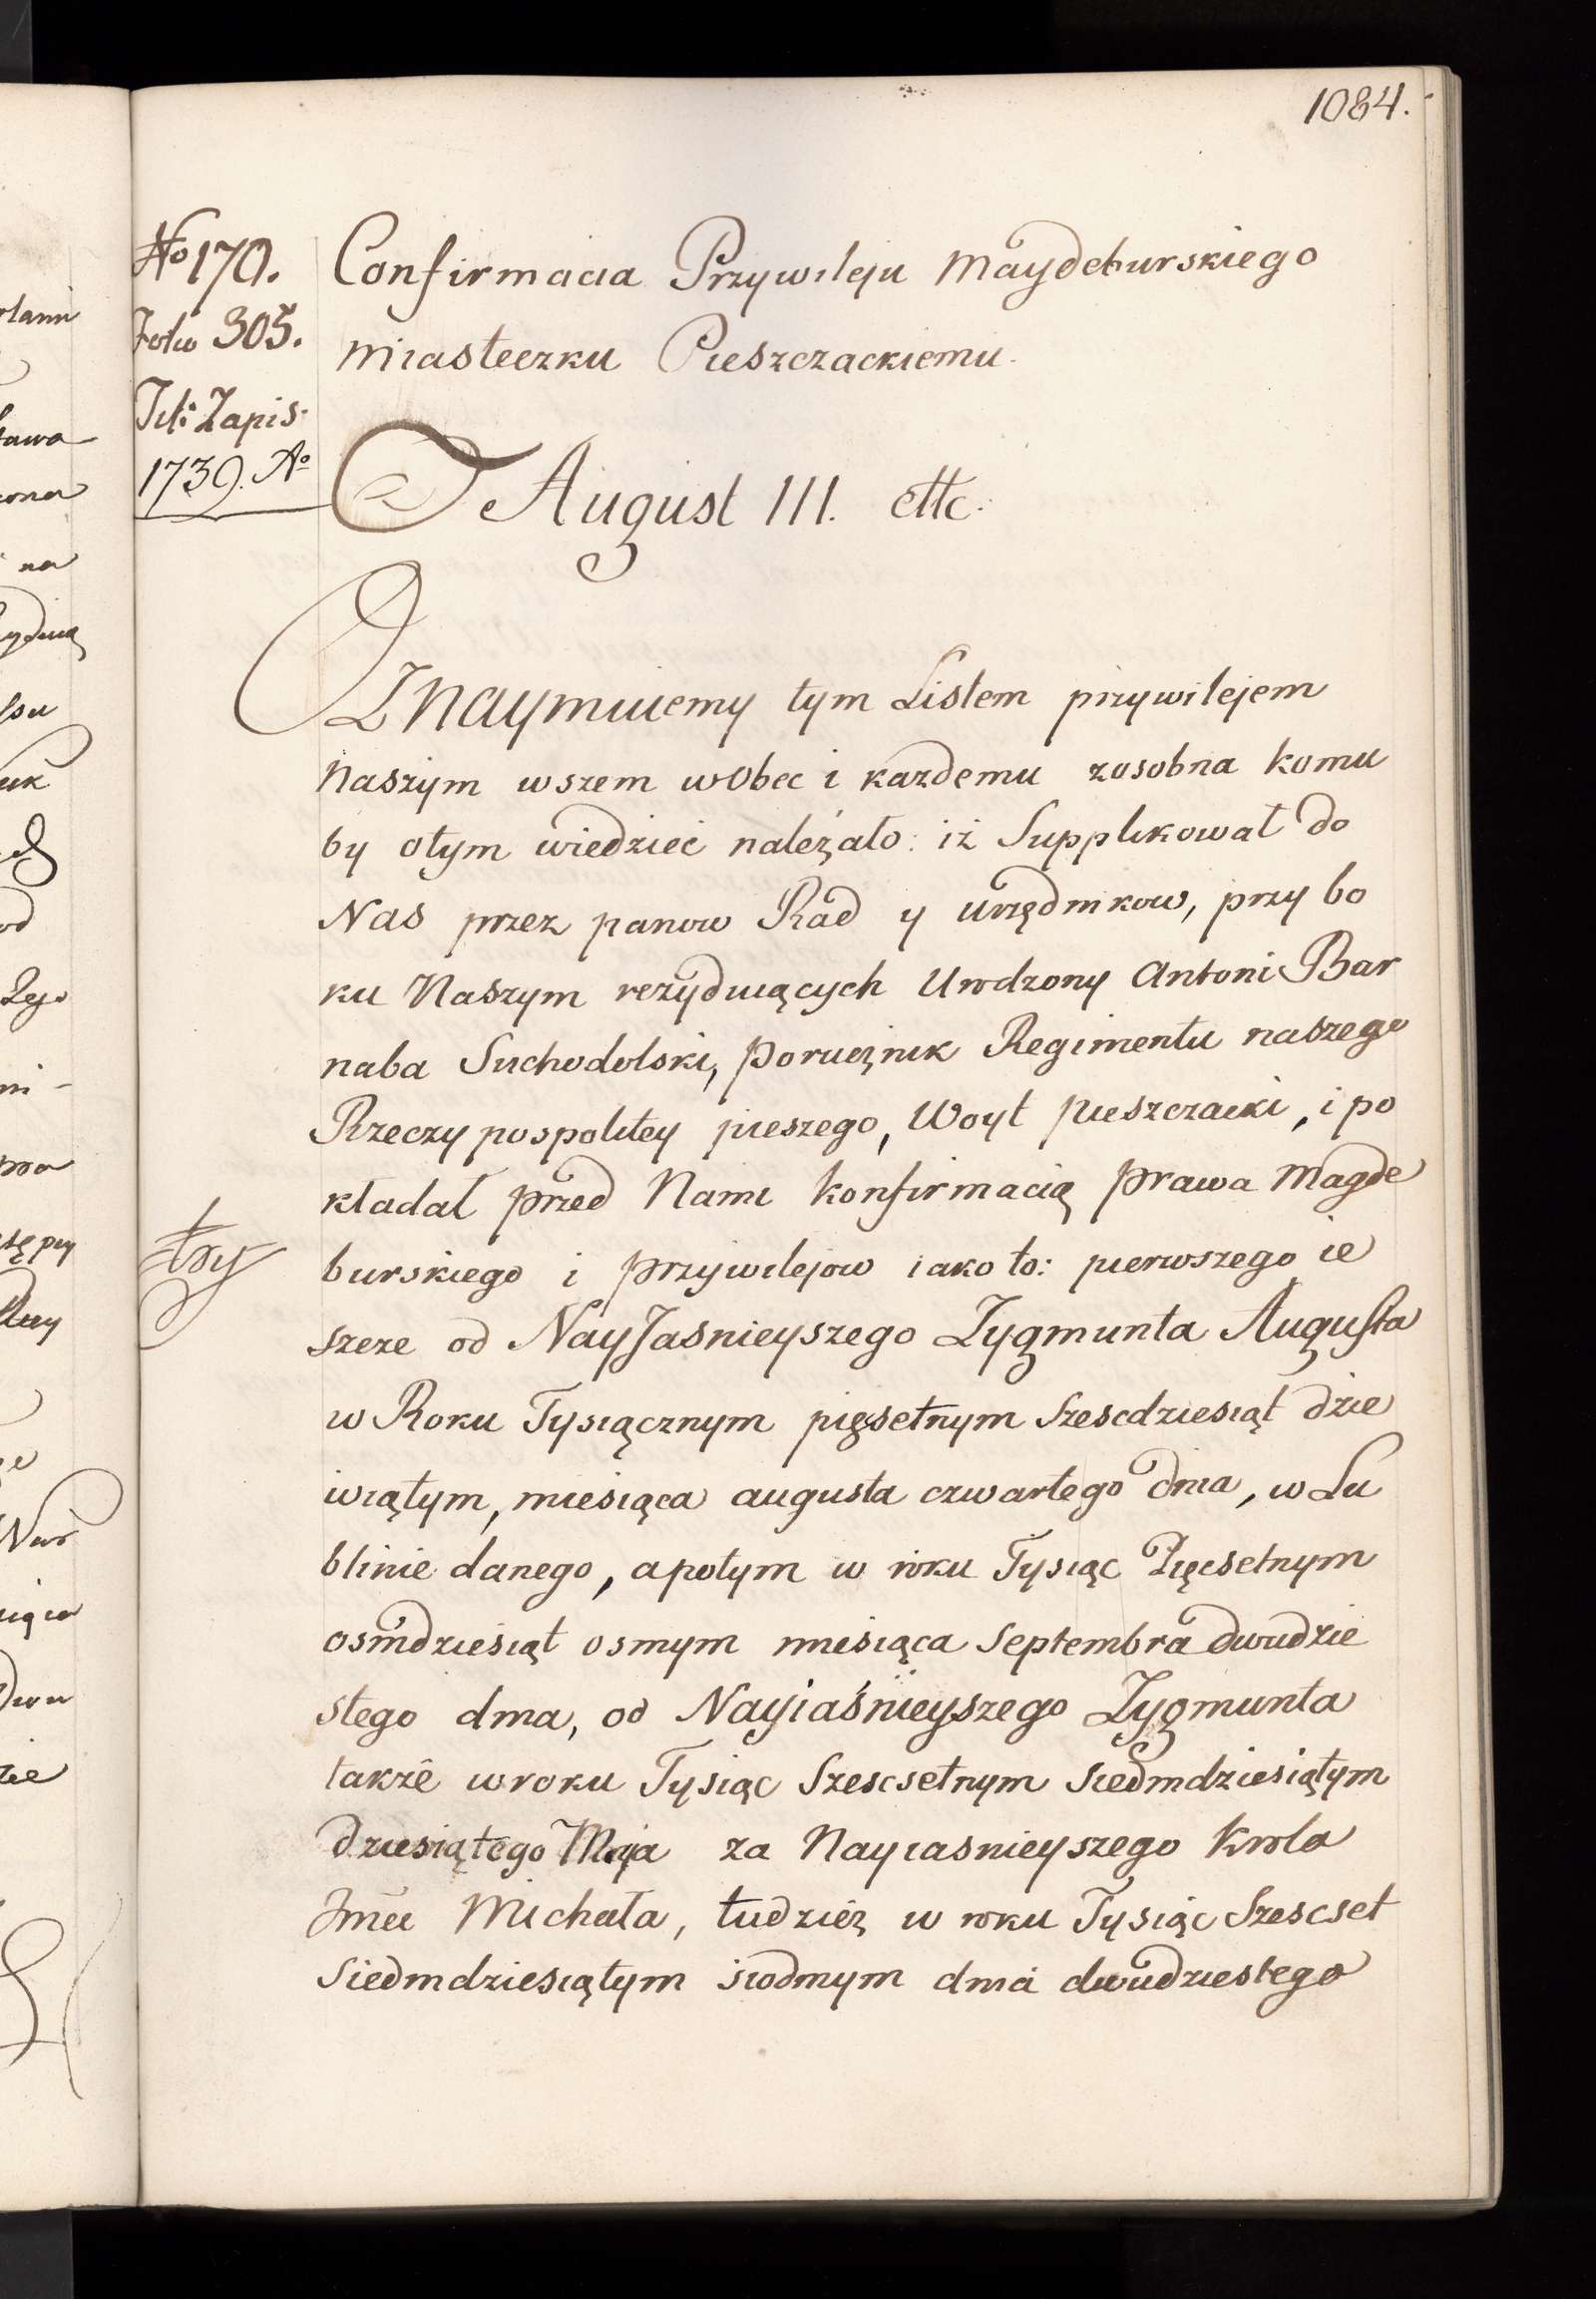 1084.
No 170.
Folio 305.
Tit: Zapis
1739. Ao
Confirmacia Przywileju Maydeburskiego
miasteczku Pieszczackiemu.
August III. ettc.
Oznaymuiemy tym Listem przywilejem
Naszym wszem wobec i kazdemu zosobna komu
by otym wiedzieć należało: iż Supplikował do
Nas przez panow Rad y urzędnikow, przy bo
ku Naszym rezyduiących Urodzony Antoni Bar
naba Suchodolski, Porucznik Regimentu naszego
Rzeczy pospolitey pieszego, Woyt Pieszczacki, i po
kładał przed Nami konfirmacią prawa Magde
burskiego i przywilejow iako to: pierwszego ie
szcze od NayJasnieyszego Zygmunta Augusta
w Roku Tysiącznym pięsetnym Szescdziesiąt dzie
wiątym, miesiąca augusta czwartego dnia, w Lu
blinie danego, apotym w roku Tysiąc Pięcsetnym
osmdziesiąt osmym miesiąca Septembra dwudzie
stego dnia, od Nayiaśnieyszego Zygmunta
także wroku Tysiąc Szescsetnym siedmdziesiątym
dziesiątego Maja za Nayiasnieyszego Krola
Jmci Michała, tudzież w roku Tysiąc Szescset
Siedmdziesiątym siodmym dnia dwudziestego